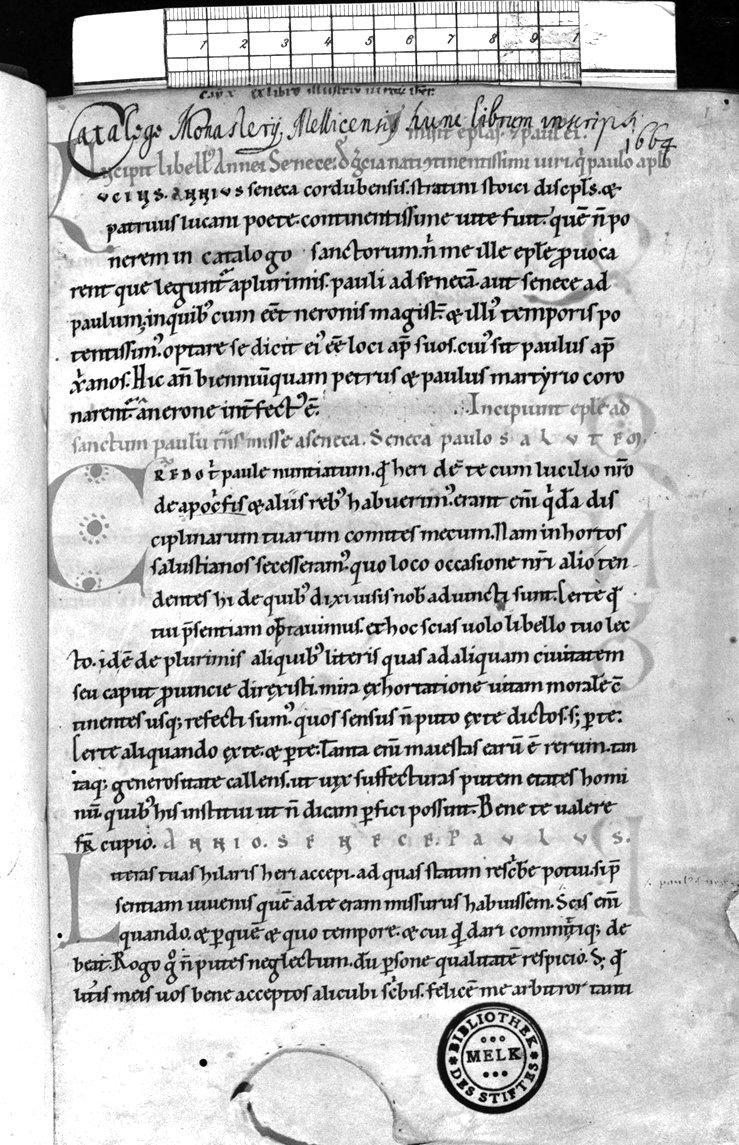 1 2 3 4 5 6 7 8 9 1
Catalogo Monasterij Mellicensis hunc librum inscripsi
1664
misit eplas. & paul ei.
Incipit libell' Annei Senece. nati 9tinentissimi uiri. q̇ paulo aplo
VCIUS. ANNIVS seneca cordubensis. stratini stoici discipls. &
patruus lucani poete. continentissime uite fuit. quē n̄ po
nerem in catalogo sanctorum. ni me ille eple prouoca
rent que legunt' a plurimis. pauli ad senecā. aut senece ad
paulum. in quib' cum eēt neronis magist̄. & illi' temporis po
tentissim'. optare se dicit ei' eē loci ap̄ suos. cui' sit paulus ap̄
xp̄ianos. Hic an̄ bienniū quam petrus & paulus martyrio coro
narent'. a nerone int'fect' ē. Incipiunt eple ad
sanctum paulū misse a seneca. Seneca paulo SALVTEM.
CREDO t' paule nuntiatum. qđ heri de te cum lucilio nr̄o
de apocrifis & aliis reb' habuerim'. erant em̄ q'dā dis
ciplinarum tuarum comites mecum. Nam in hortos
salustianos secesseram'. quo loco occasione nr̄i alio ten-
dentes hi de quib' dixi uisis nob' adiuncti sunt. Certe qđ
tui p̄sentiam optauimus. et hoc scias uolo libello tuo lec
to. idē de plurimis aliquib' literis quas ad aliquam ciuitatem
seu caput prouincie direxisti. mira exhortatione uitam moralē c̄
tinentes usq; refecti sum'. quos sensus n̄ puto ex te dictos. s; per te.
Certe aliquando ex te. & per te. Tanta em̄ maiestas earū ē rerum. tan
taq; generositate callens. ut uix suffecturas putem etates homi
nū. quib' his institui ut n̄ dicam perfici possint. Bene te ualere
fr̄ cupio. ANNIO. SENECE. PAVLVS.
Literas tuas hilaris heri accepi. ad quas statim rescbe potui. si p̄
sentiam iuuenis quē ad te eram missurus habuissem. Scis em̄
quando. & per quē & quo tempore. & cui qđ dari committiq; de
beat. Rogo g° n̄ putes neglectum. dū psone qualitatē respicio. S; qđ
litis meis uos bene acceptos alicubi scbis. felicē me arbitror tanti
BIBLIOTHEK
MELK
DES STIFTES